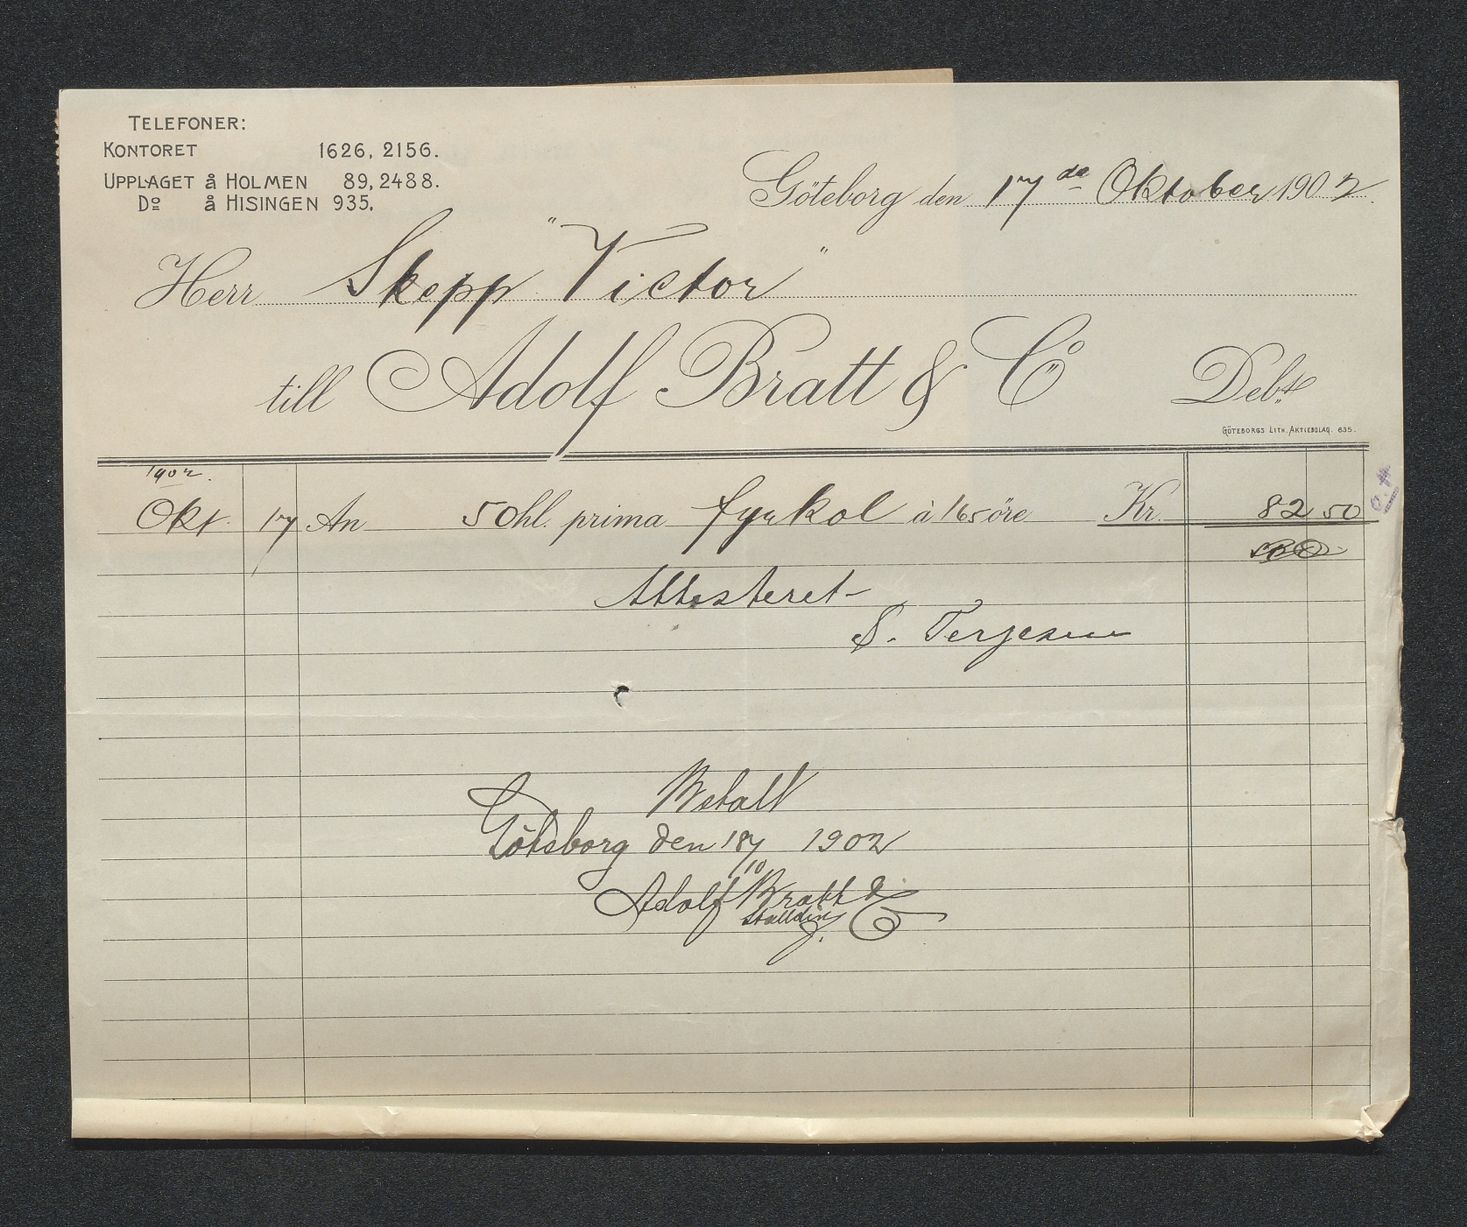 TELEFONER:
KONTORET 1626, 2156.
UPPLAGET å HOLMEN 89, 2488.
Do å HISINGEN 935.
Göteborg den 17de Oktober 1902.
Herr Skepp "Victor"
till Adolf Bratt & Co Debt
GÖTEBORGS LITH. AKTIEBOLAG. 635.
1902.
Okt. 17 An 50 hl. prima fyrkol à 165 öre Kr. 82 50
Attesteret
S. Terjesen
Betalt
Göteborg den 18/10 1902
Adolf Bratt & Co